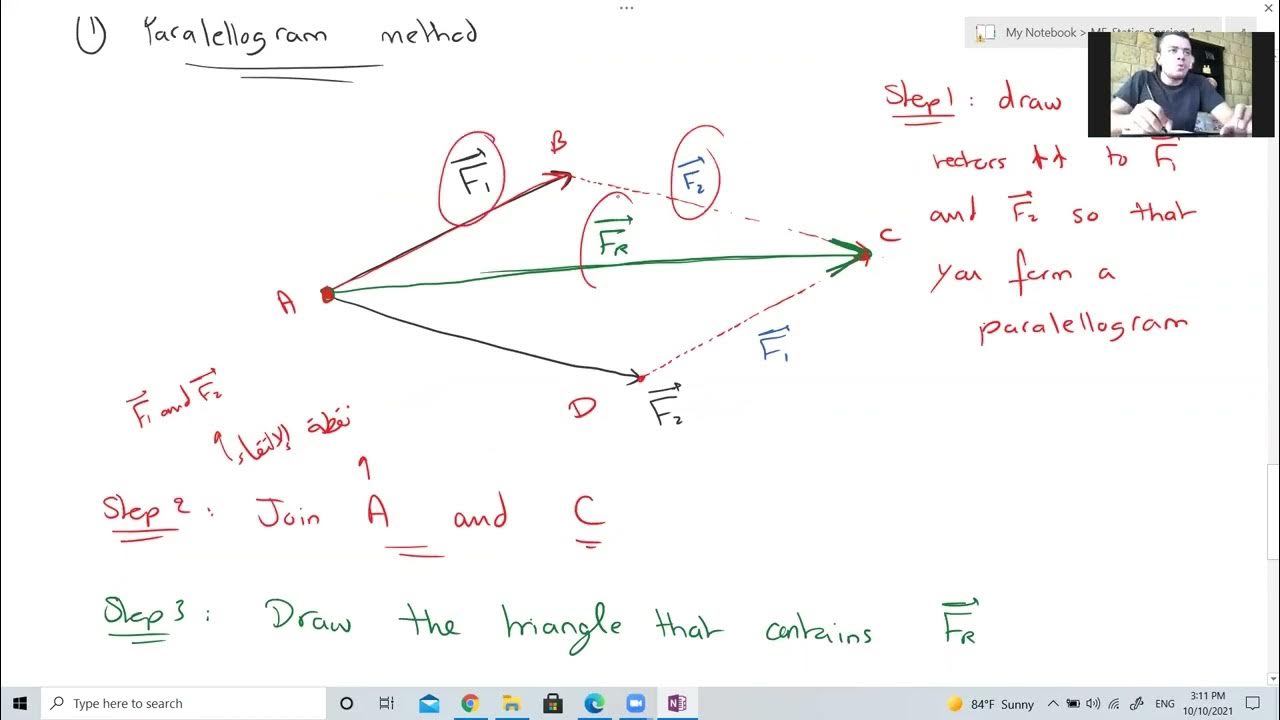 ① Paralellogram method
My Notebook > ME Statics Session 1
Step 1: draw
vectors to F₁
and F₂ so that
you form a
paralellogram
B
F₁
F₂
F_R
C
A
F₁
D
F₂
F₁ and F₂
نقطة الإلتقاء
Step 2: Join A and C
Step 3: Draw the triangle that contains F_R
Type here to search
84°F Sunny
ENG
3:11 PM
10/10/2021